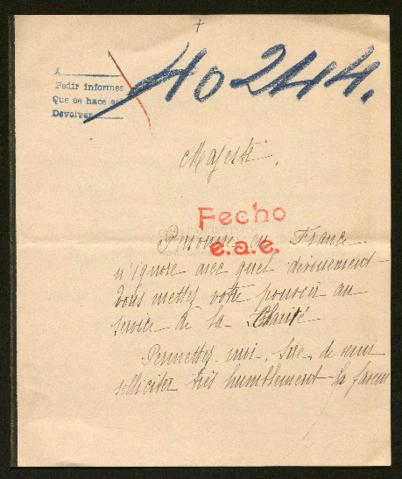 +
A
Pedir informes
Que se hace
Devolver
40244.
Majesté,
Fecho
e.a.e.
Personne en France
n'ignore avec quel dévouement
Vous mettez votre pouvoir au
service de la Charité
Permettez-moi, Sire, de venir
solliciter très humblement la faveur